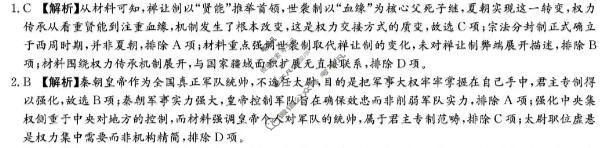 1. C 【解析】从材料可知,禅让制以“贤能”推举首领,世袭制以“血缘”为核心父死子继,夏朝实现这一转变,权力
传承从看重贤能到注重血缘,机制发生了根本改变,这是权力交接方式的质变,故选C项;宗法分封制正式确立
于西周时期,并非夏朝,排除A项;材料重点强调世袭制取代禅让制的变化,未对禅让制弊端展开描述,排除B
项;材料围绕权力传承机制展开,与国家疆域面积扩展无直接联系,排除D项。
2. B 【解析】秦朝皇帝作为全国真正军队统帅,不选任太尉,目的是把军事大权牢牢掌握在自己手中,君主专制得
以强化,故选B项;秦朝军事实力强大,皇帝控制军队旨在确保效忠而非削弱军队实力,排除A项;强化中央集
权侧重于中央对地方的控制,而材料强调皇帝个人对军队的统帅,属于君主专制范畴,排除C项;太尉职位虚悬
是权力集中需要而非机构精简,排除D项。